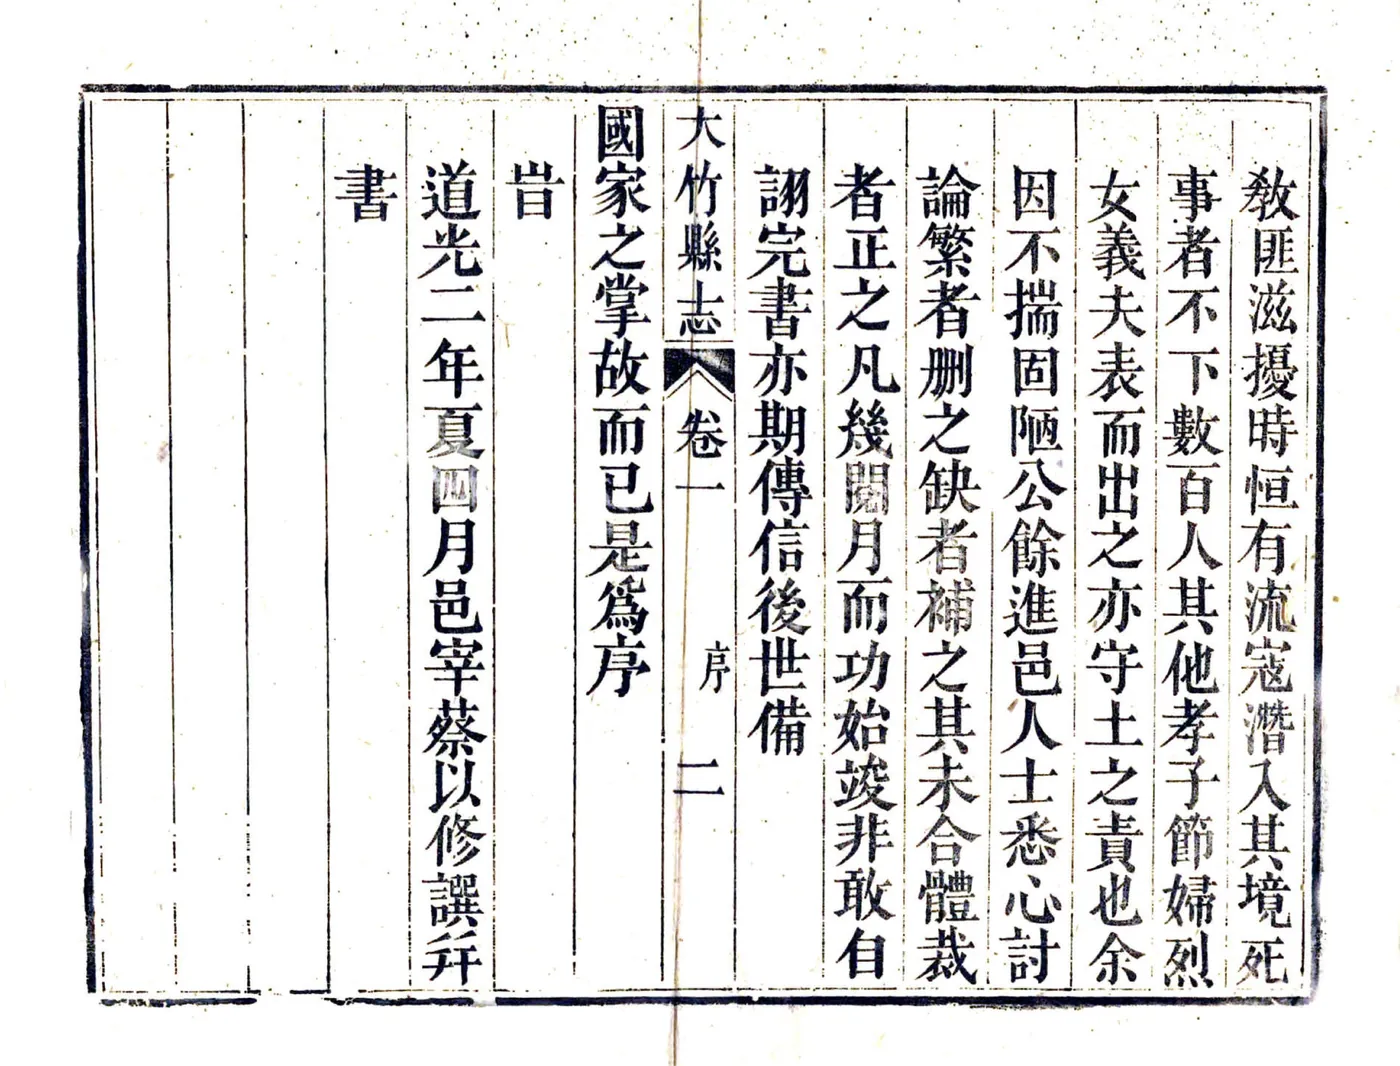 敎匪滋擾時恒有流寇潛入其境死
事者不下數百人其他孝子節婦烈
女義夫表而出之亦守土之責也余
因不揣固陋公餘進邑人士悉心討
論繁者删之缺者補之其未合體裁
者正之凡幾閱月而功始竣非敢自
詡完書亦期傳信後世備
大竹縣志 卷一 序 二
國家之掌故而已是爲序
旹
道光二年夏四月邑宰蔡以修譔幷
書